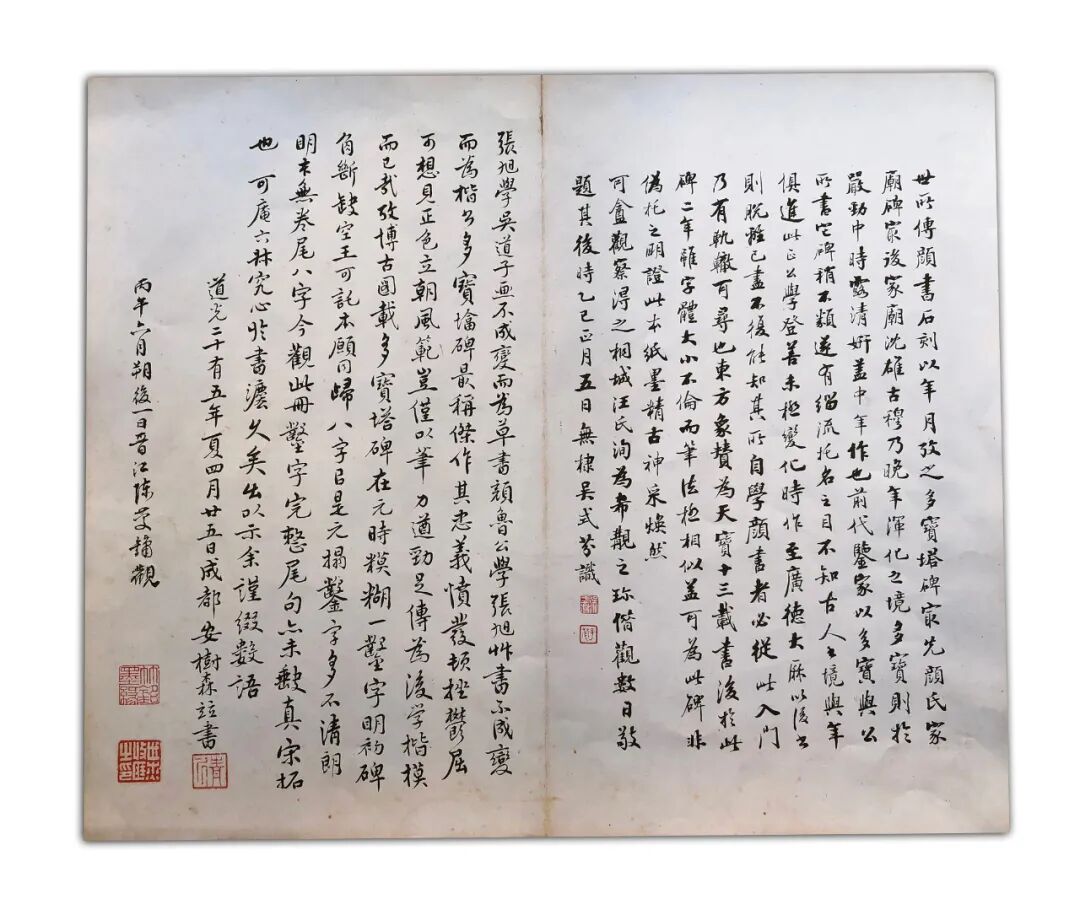 世所傳顏書石刻以年月攷之多寶塔碑最先顏氏家
廟碑最後家廟沈雄古穆乃晚年渾化之境多寶則於
嚴勁中時露清妍蓋中年作也前代鑒家以多寶與公
所書它碑稍不類遂有緇流托名之目不知古人之境與年
俱進此正公學登善未極變化時作至廣德大厤以後書
則脫離已盡不復能知其所自學顏書者必從此入門
乃有軌轍可尋也東方象贊為天寶十三載書後於此
碑二年雖字體大小不倫而筆法極相似蓋可為此碑非
偽托之明證此本紙墨精古神采煥然
可盫觀察得之桐城汪氏洵為希覯之珎借觀數日敬
題其後時乙巳正月五日無棣吳式芬識
張旭學吳道子畫不成變而為草書顏魯公學張旭艸書不成變
而為楷公多寶塔碑最稱傑作其忠義憤發頓挫鬱屈
可想見正色立朝風範豈僅以筆力遒勁足傳為後學楷模
而已哉攷博古圖載多寶塔碑在元時糢糊一鑿字明初碑
角斷缺空王可託本願同歸八字旧是元搨鑿字多不清朗
明末無卷尾八字今觀此冊鑿字完整尾句亦未缺真宋拓
也可庵六兄究心於書灋久矣出以示余謹綴數語
道光二十有五年夏四月廿五日成都安樹森竝書
丙午六月朔後一日晉江陳慶鏞觀